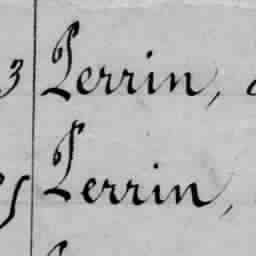 3 Perrin,
Perrin,